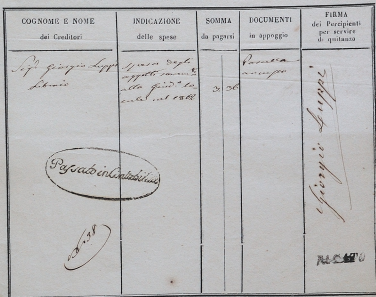 COGNOME E NOME
dei Creditori
INDICAZIONE
delle spese
SOMMA
da pagarsi
DOCUMENTI
in appoggio
FIRMA
dei Percipienti
per servire
di quitanza
Sigr. Giorgio Luppi
Libraio
spesa degli
nel 1862
3 36
Giorgio Luppi
Passato in Contabilità
No. 38
PAGATO